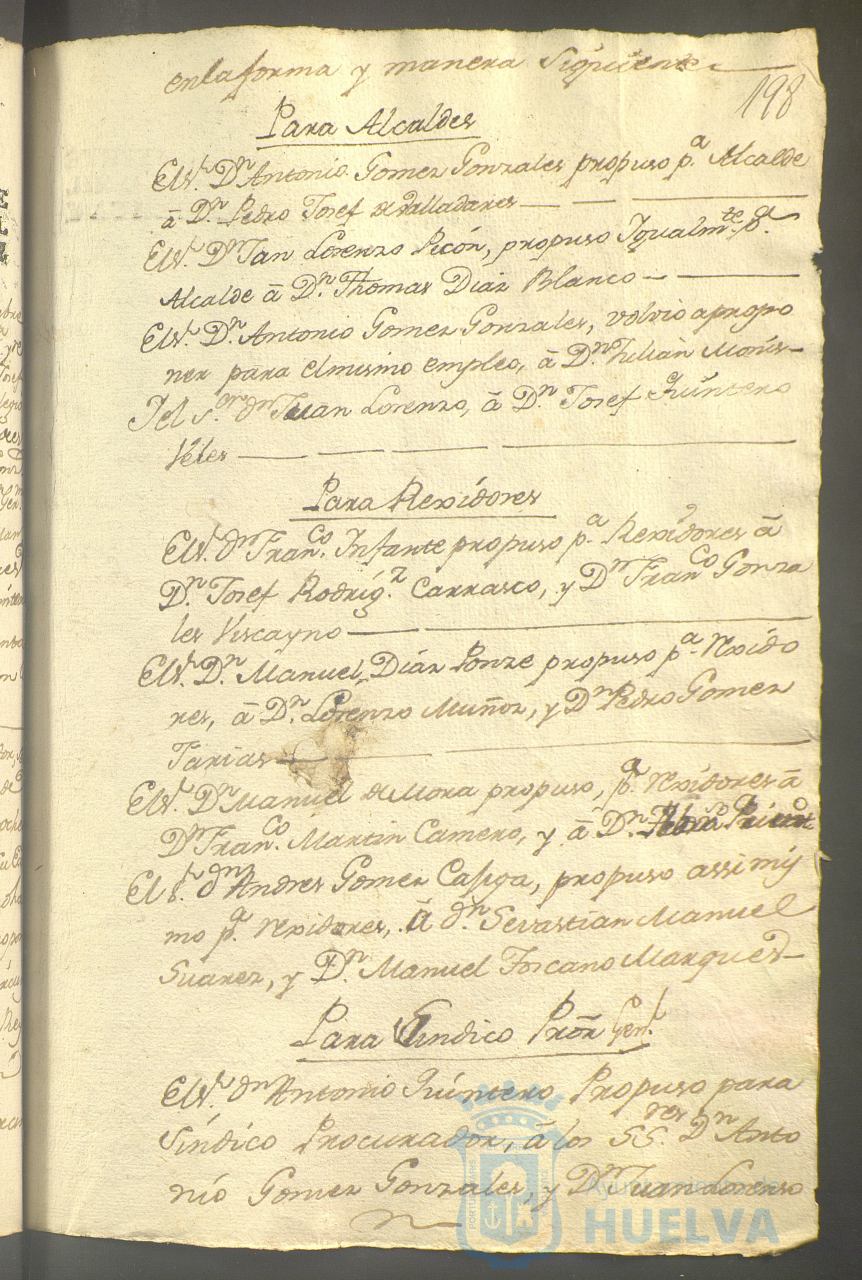 en la forma y manera Siguiente
198
Para Alcaldes
El Sr. Dn Antonio Gomez Gonzales propuso pa. Alcalde
â Dn. Pedro Josef de Valladares
El Sr. Dn Juan Lorenzo Picón, propuso Igualmte. pa.
Alcalde â Dn. Thomas Diaz Blanco
El Sr. Dn. Antonio Gomez Gonzales, volvio apropo
ner para el mismo empleo, â Dn. Julian
Y el Sor. dn Juan Lorenzo, â Dn. Josef Quintero
Veles
Para Rexidores
El Sr. dn Franco. Infante propuso pa. Rexidores â
Dn. Josef Rodrigz. Carrasco, y Dn Franco Gonza
les Viscayno
El Sr. Dn. Manuel Diaz Ponze propuso pa. Rexido
res, â Dn. Lorenzo Muñoz, y Dn Pedro Gomez
El Sr. Dn Manuel de Mora propuso, pa. rexidores â
Dn Franco. Martin Camero, y â Dn.
El Sr. dn Andres Gomez propuso assi mis
mo pa. rexidores, â dn Sevastian Manuel
Suarez, y Dn. Manuel Toscano Marques
Para Sindico Pror Genl.
El Sr. dn Antonio Quintero Propuso para
Sindico Procurador, â los SSres Dn Anto
nio Gomez Gonzales, y Dn Juan Lorenzo
Ayuntamiento de
HUELVA